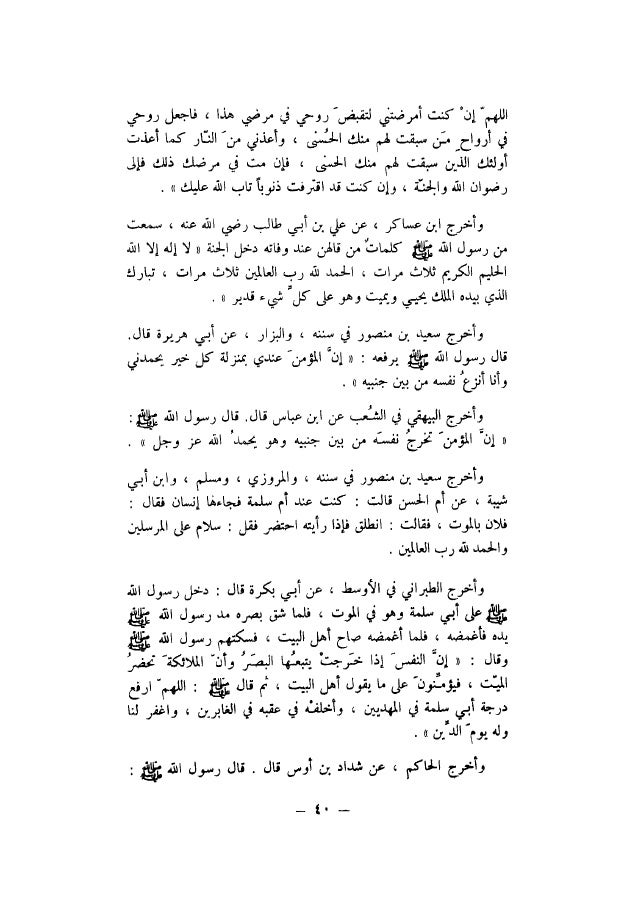 اللهمّ إنْ كنت أمرضتني لتقبضَ روحي في مرضي هذا ، فاجعل روحي
في أرواحِ مَن سبقت لهم منك الحُسنْى ، وأعذني منَ النّار كما أعذت
أولئك الذين سبقت لهم منك الحسنْى ، فإن مت في مرضك ذلك فإلى
رضوان الله والجنّة ، وإن كنت قد اقترفت ذنوباً تاب الله عليك » .
وأخرج ابن عساكر ، عن علي بن أبي طالب رضي الله عنه ، سمعت
من رسول الله ﷺ كلماتٌ من قالهن عند وفاته دخل الجنة « لا إله إلا الله
الحليم الكريم ثلاث مرات ، الحمد لله رب العالمين ثلاث مرات ، تبارك
الذي بيده الملك يحيي ويميت وهو على كلِّ شيء قدير » .
وأخرج سعيد بن منصور في سننه ، والبزار ، عن أبي هريرة قال.
قال رسول الله ﷺ يرفعه : « إنَّ المؤمنَ عندي بمنزلة كل خير يحمدني
وأنا أنزعُ نفسه من بين جنبيه » .
وأخرج البيهقي في الشُعب عن ابن عباس قال. قال رسول الله ﷺ :
« إنَّ المؤمنَ تخرجُ نفسَه من بين جنبيه وهو يحمدُ الله عز وجل » .
وأخرج سعيد بن منصور في سننه ، والمروزي ، ومسلم ، وابن أبي
شيبة ، عن أم الحسن قالت : كنت عند أم سلمة فجاءها إنسان فقال :
فلان بالموت ، فقالت : انطلق فإذا رأيته احتضر فقل : سلام على المرسلين
والحمد لله رب العالمين .
وأخرج الطبراني في الأوسط ، عن أبي بكرة قال : دخل رسول الله
ﷺ على أبي سلمة وهو في الموت ، فلما شق بصره مد رسول الله ﷺ
يده فأغمضه ، فلما أغمضه صاح أهل البيت ، فسكتهم رسول الله ﷺ
وقال : « إنَّ النفسَ إذا خَرجتْ يتبعُها البصَرُ وأنّ الملائكةَ تحضرُ
الميّت ، فيؤمّنونَ على ما يقول أهل البيت ، ثم قال ﷺ : اللهمّ ارفع
درجة أبي سلمة في المهديين ، وأخلفْه في عقبه في الغابرين ، واغفر لنا
وله يومَ الدِّين » .
وأخرج الحاكم ، عن شداد بن أوس قال . قال رسول الله ﷺ :
— ٤٠ —